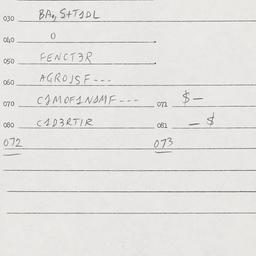 030 BA, S+T1DL
040 0
050 FENCT3R
060 AGROJSF---
070 C1MOF1N1MF--- 071 $-
080 C1D3RTIR 081 -$
072 073